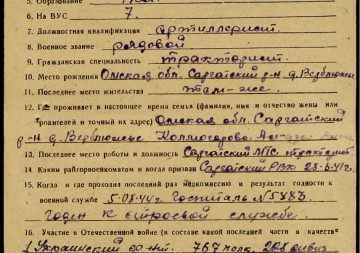 5. Образование
6. На ВУС 7.
7. Должностная квалификация артиллерист.
8. Военное звание рядовой
9. Гражданская специальность тракторист.
10. Место рождения Омская обл. Саргатский р-н д. Верблюжье
11. Последнее место жительства там-же.
12. Где проживает в настоящее время семья (фамилия, имя и отчество жены или
родителей и точный их адрес) Омская обл. Саргатский
р-н д. Верблюжье
13. Последнее место работы и должность Саргатский МТС тракторист
14. Каким райгорвоенкоматом и когда призван Саргатский РВК 28-6-41г.
15. Когда и где проходил последний раз медкомиссию и результат годности к
военной службе 5-08-44г. Госпиталь №5883
годен к строевой службе.
16. Участие в Отечественной войне (в составе какой последней части и в качестве
1 Украинский фронт. 767 полк, 208 дивиз